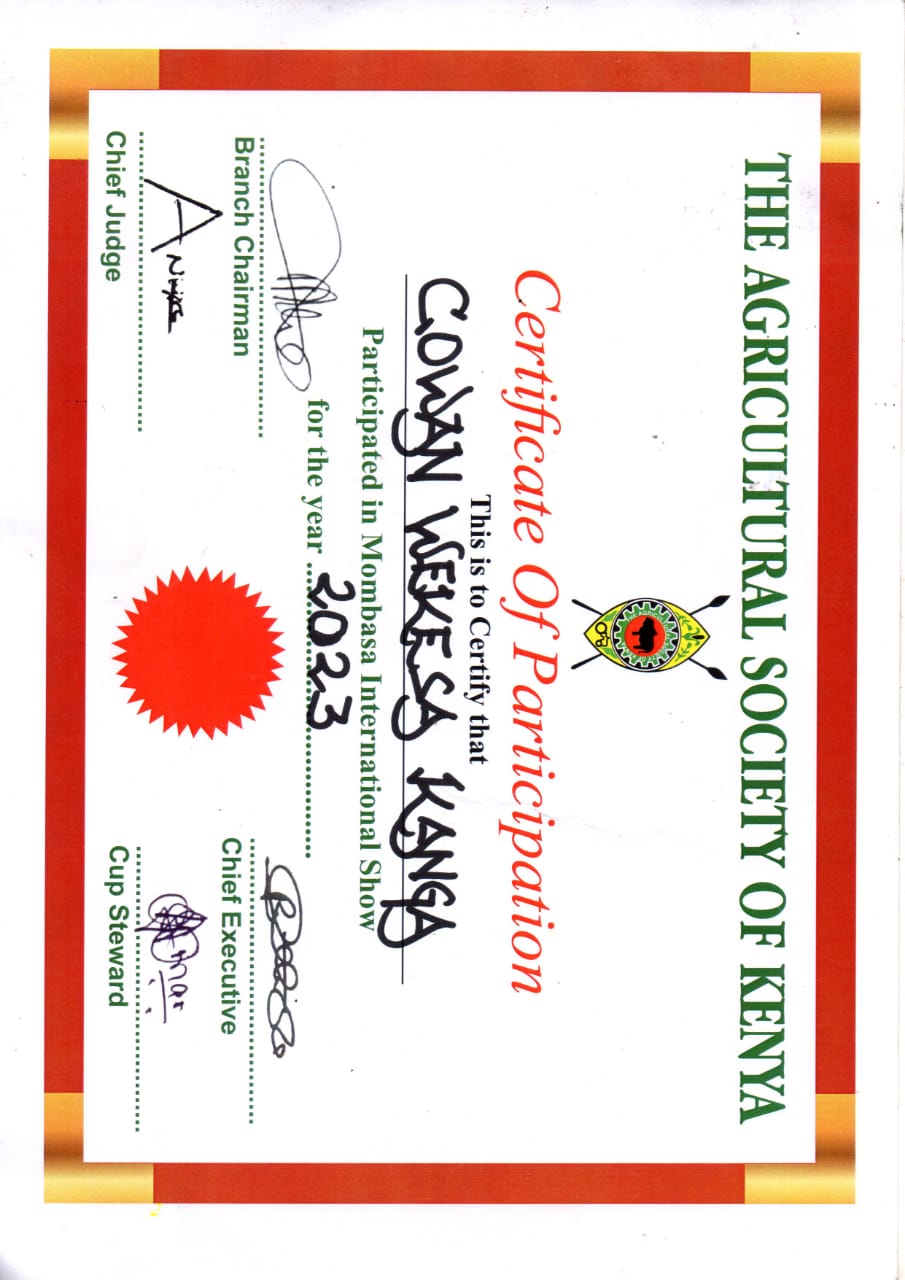 THE AGRICULTURAL SOCIETY OF KENYA
Certificate Of Participation
This is to Certify that
COWAN WEKESA KANGA
Participated in Mombasa International Show
for the year 2023
Branch Chairman
Chief Executive
Chief Judge
Cup Steward